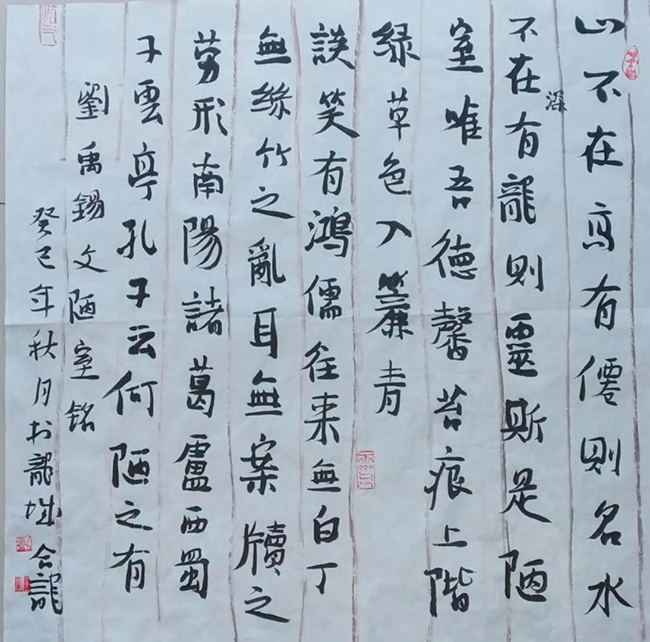 山不在高有僊則名水
不在有龍則靈斯是陋
深
室唯吾德馨苔痕上階
緑草色入簾青
談笑有鴻儒往来無白丁
無絲竹之亂耳無案牘之
勞形南陽諸葛盧西蜀
子雲亭孔子云何陋之有
劉禹錫文陋室铭
癸巳年秋月於龍城合龍